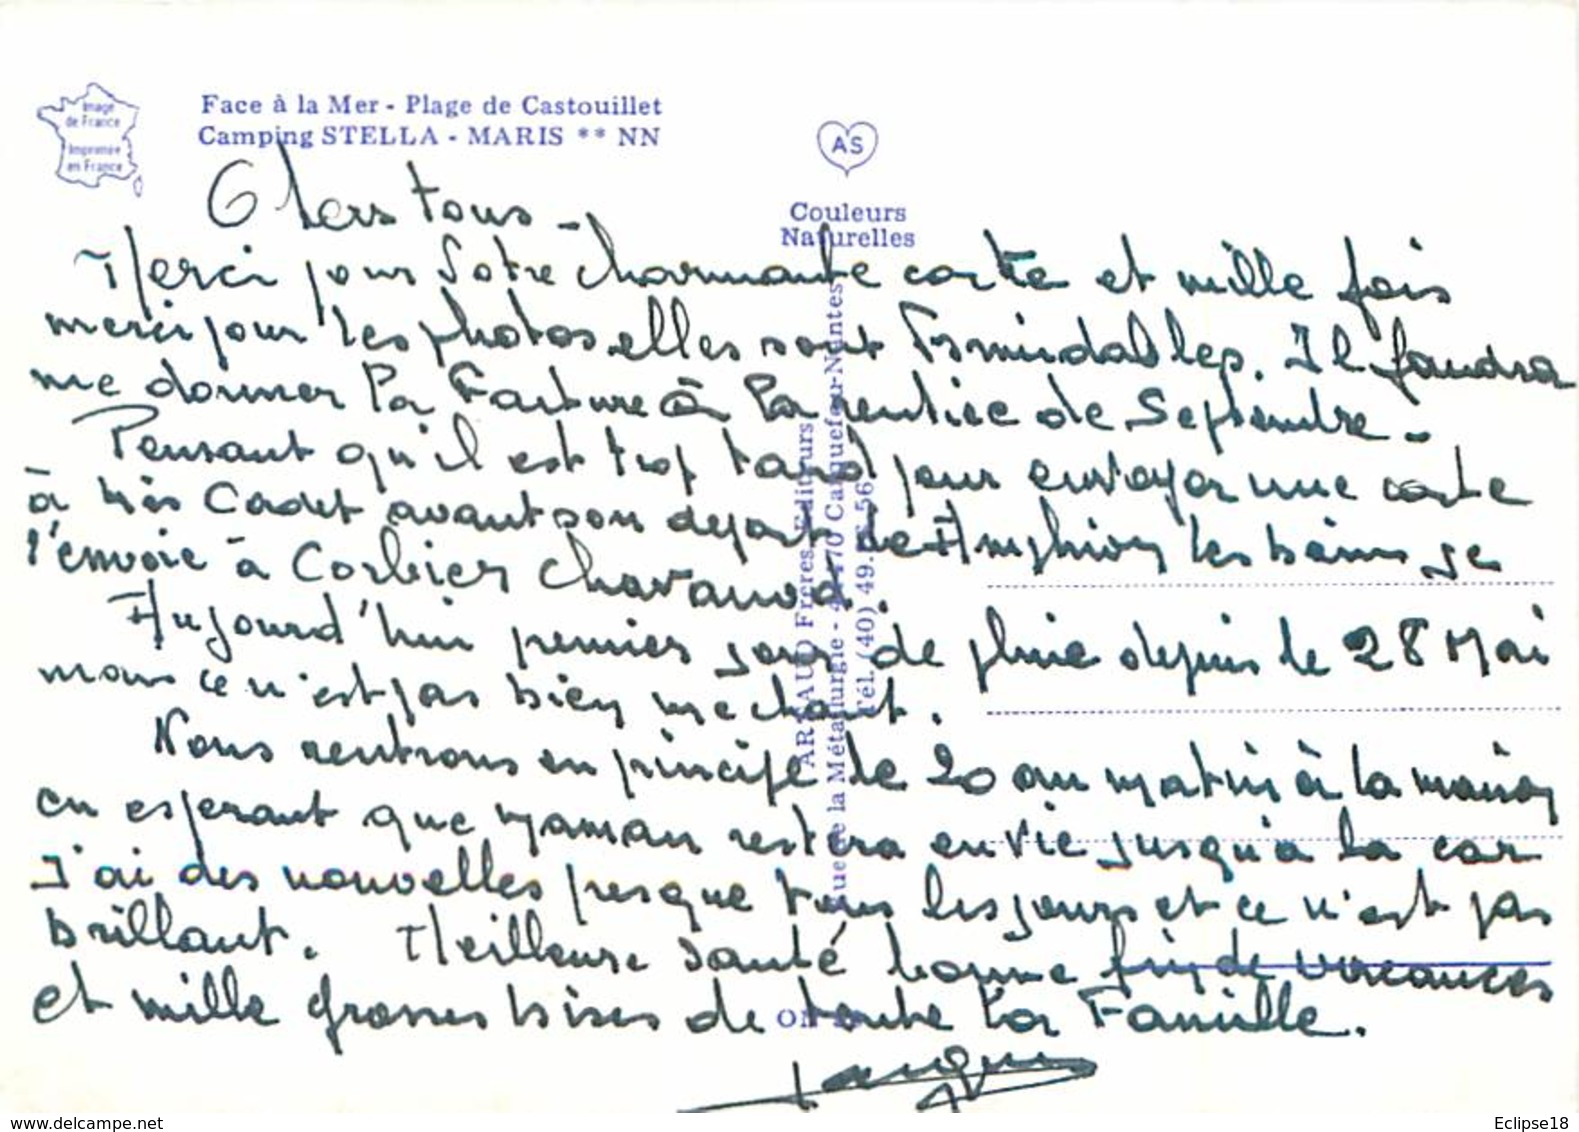 Image
de France
Imprimée
en France
Face à la Mer - Plage de Castouillet
Camping STELLA - MARIS ** NN
AS
Couleurs
Naturelles
Chers tous -
Merci pour votre charmante carte et mille fois
merci pour les photos elles sont formidables. Il faudra
me donner la Facture à la rentrée de Septembre -
Pensant qu'il est trop tard pour envoyer une carte
à Cadet avant son départ de Amphion les bains je
l'envoie à Corbier Chavanod.
Aujourd'hui premier jour de pluie depuis le 28 Mai
mais ce n'est pas bien méchant.
Nous rentrons en principe le 20 au matin à la maison
en esperant que maman restera en vie jusqu'a la car
J'ai des nouvelles presque tous les jours et ce n'est pas
brillant. Meilleure santé bonne fin de vacances
et mille grosses bises de toute la Famille.
Jacques
ARTAUD Frères, Editeurs
rue de la Métallurgie - 44470 Carquefou-Nantes
Tél. (40) 49.
www.delcampe.net
Eclipse18